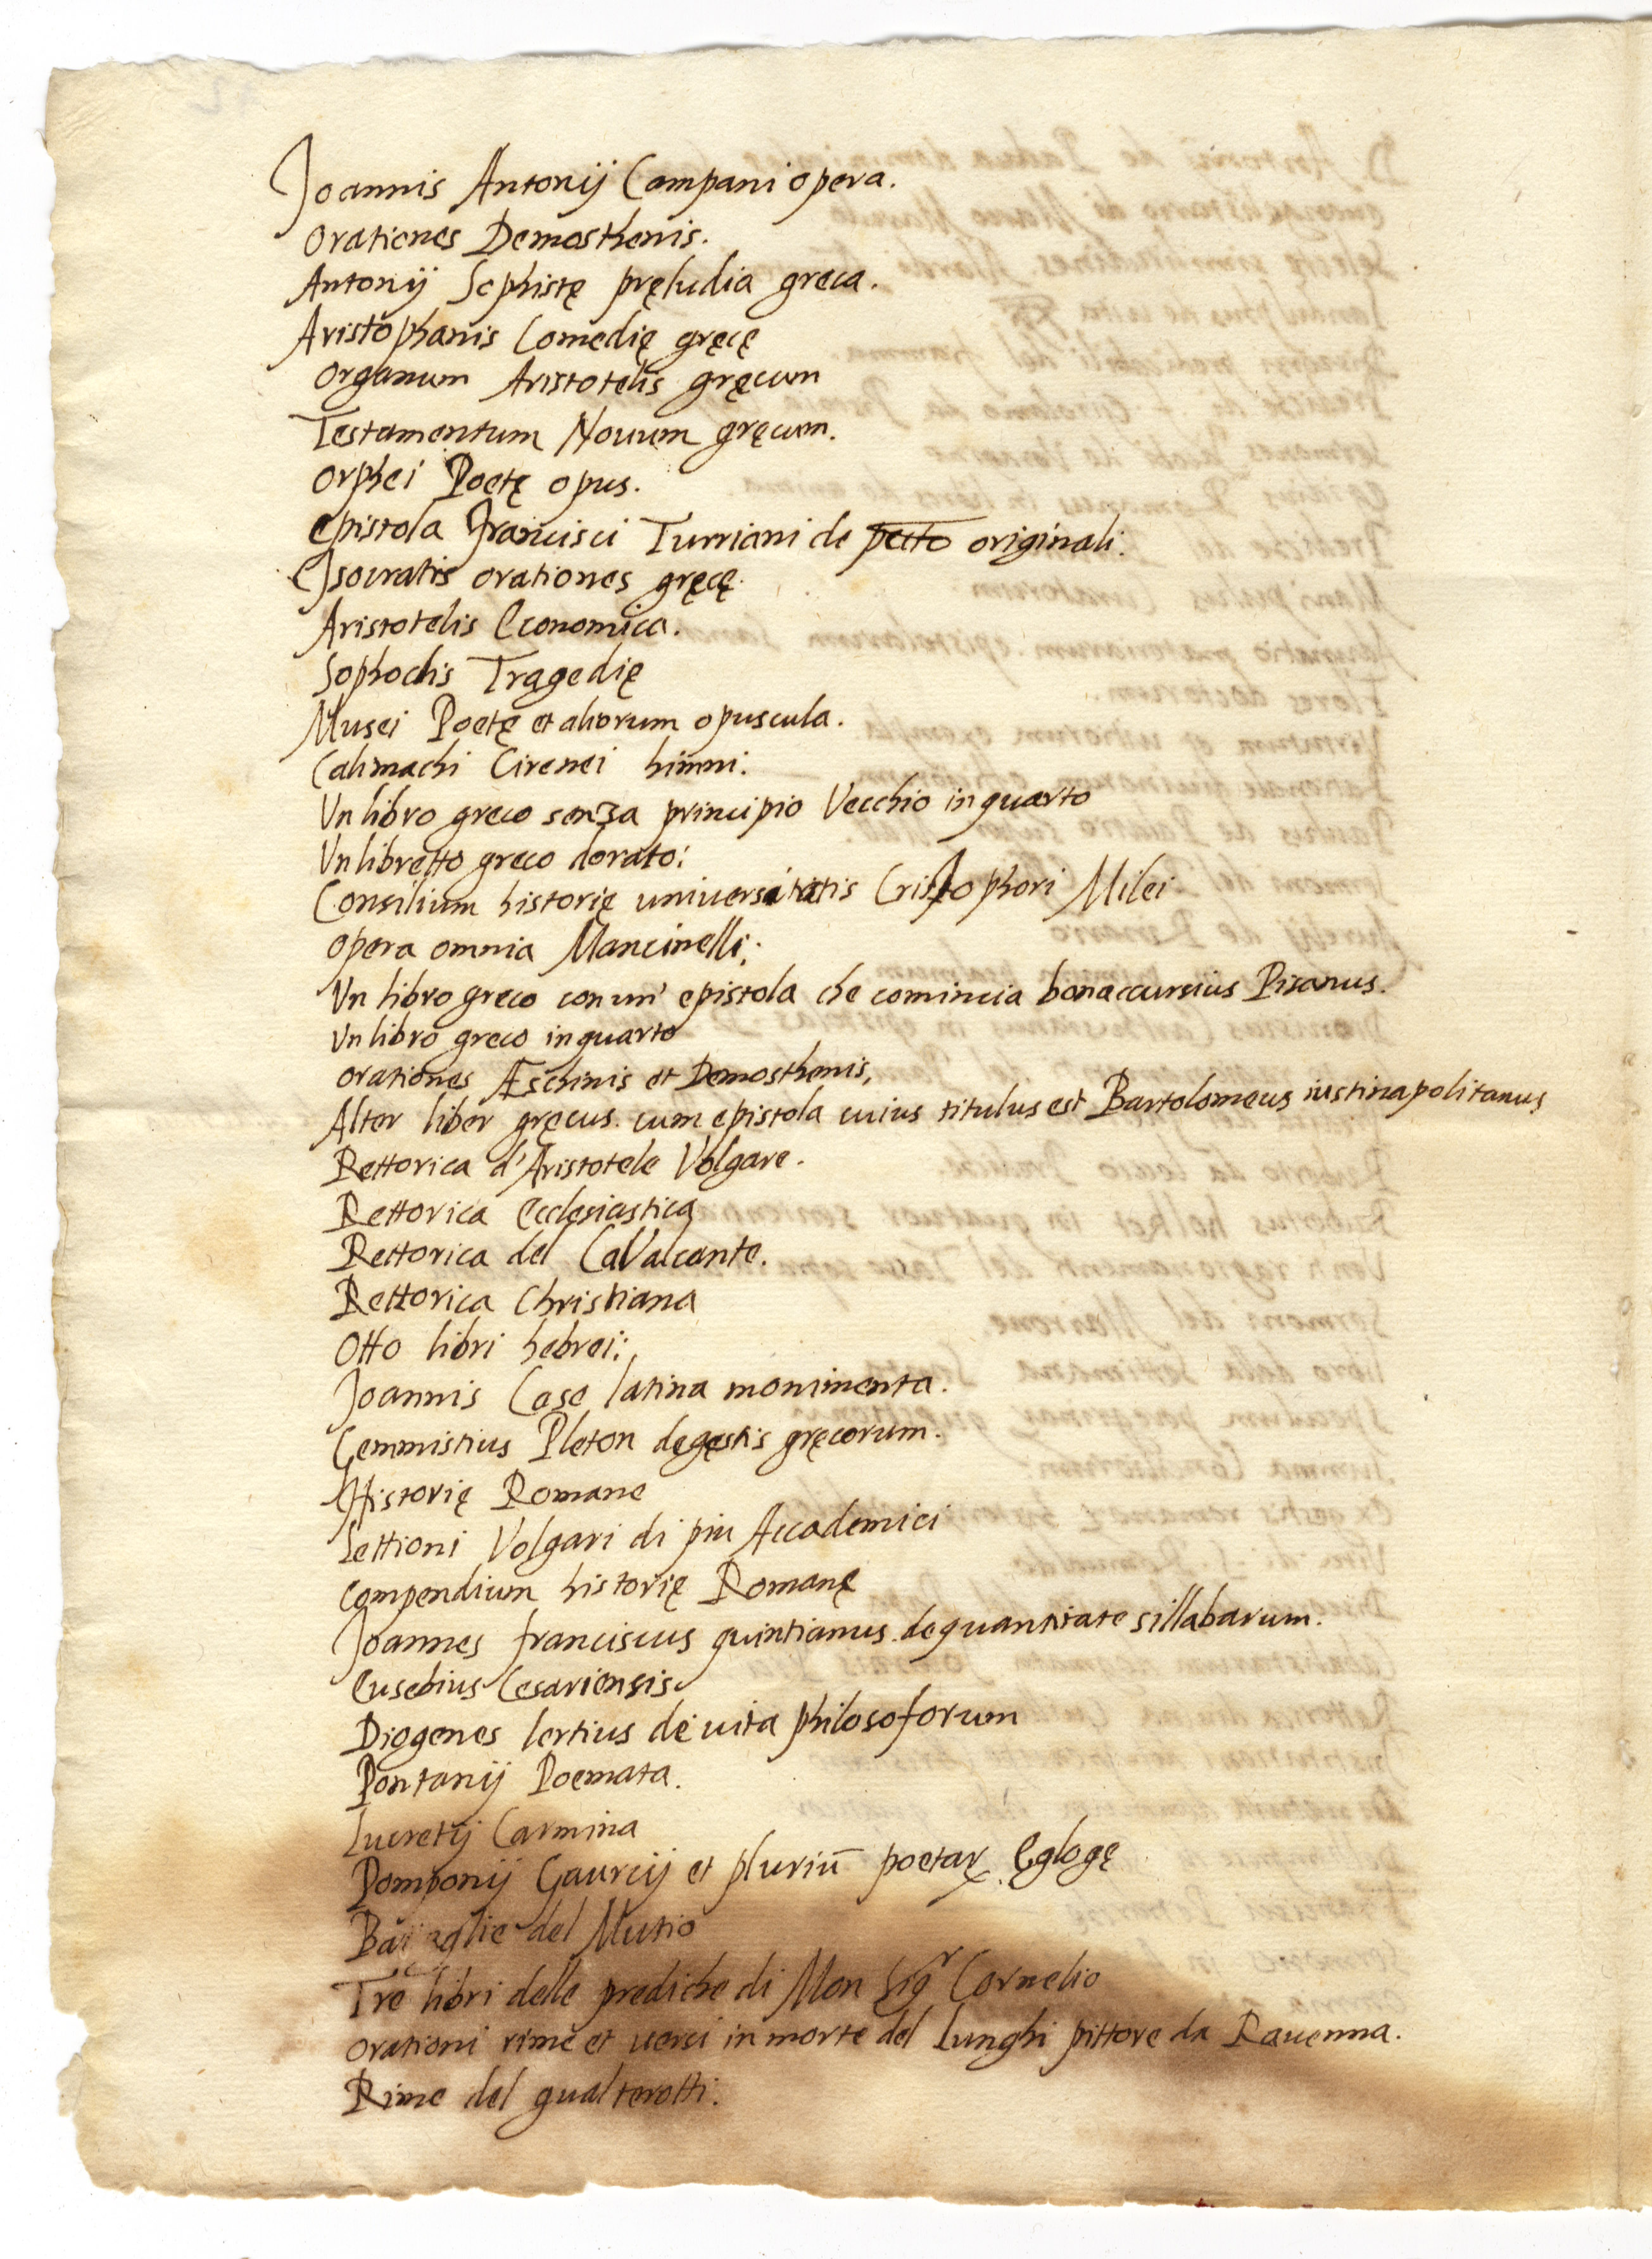 Joannis Antonij Campani opera.
Orationes Demosthenis.
Antonij Sophistę pręludia greca.
Aristophanis Comedię gręcę
Organum Aristotelis gręcum
Testamentum Nouum gręcum.
Orphei Poetę opus.
Epistola Francisci Turriani de pctto originali.
Isocratis orationes gręcę.
Aristotelis Economica.
Sophoclis Tragedię
Musei Poetę et aliorum opuscula.
Calimachi Cirenei himni.
Vn libro greco senza principio Vecchio in quarto
Vn libretto greco dorato:
Consilium historię universitatis Cristophori Milei
Opera omnia Mancinelli;
Vn libro greco con un' epistola che comincia bonaccursius Pisanus.
Vn libro greco in quarto
Orationes Æschinis et Demosthenis,
Alter liber gręcus. cum epistola cuius titulus est Bartolomeus iustinapolitanus
Rettorica d'Aristotele Volgare.
Rettorica Ecclesiastica
Rettorica del CaValcante.
Rettorica Christiana
Otto libri hebrei;
Joannis Case latina monimenta.
Gemmistius Pleton de gęstis gręcorum.
Historię Romane
Lettioni Volgari di piu Accademici
Compendium historię Romanę
Joannes franciscus quintianus. de quantitate sillabarum.
Eusebius Cesariensis
Diogenes lertius de uita philosoforum
Pontanij Poemata.
Lucretij Carmina
Pomponij Gaurcij et pluriū poetaꝝ. Eglogę
Battaglie del Mutio
Tre libri delle prediche di Mon Sigʳ Cornelio
Orationi rime et uersi in morte del Lunghi pittore da Rauenna.
Rime del gualterotti.